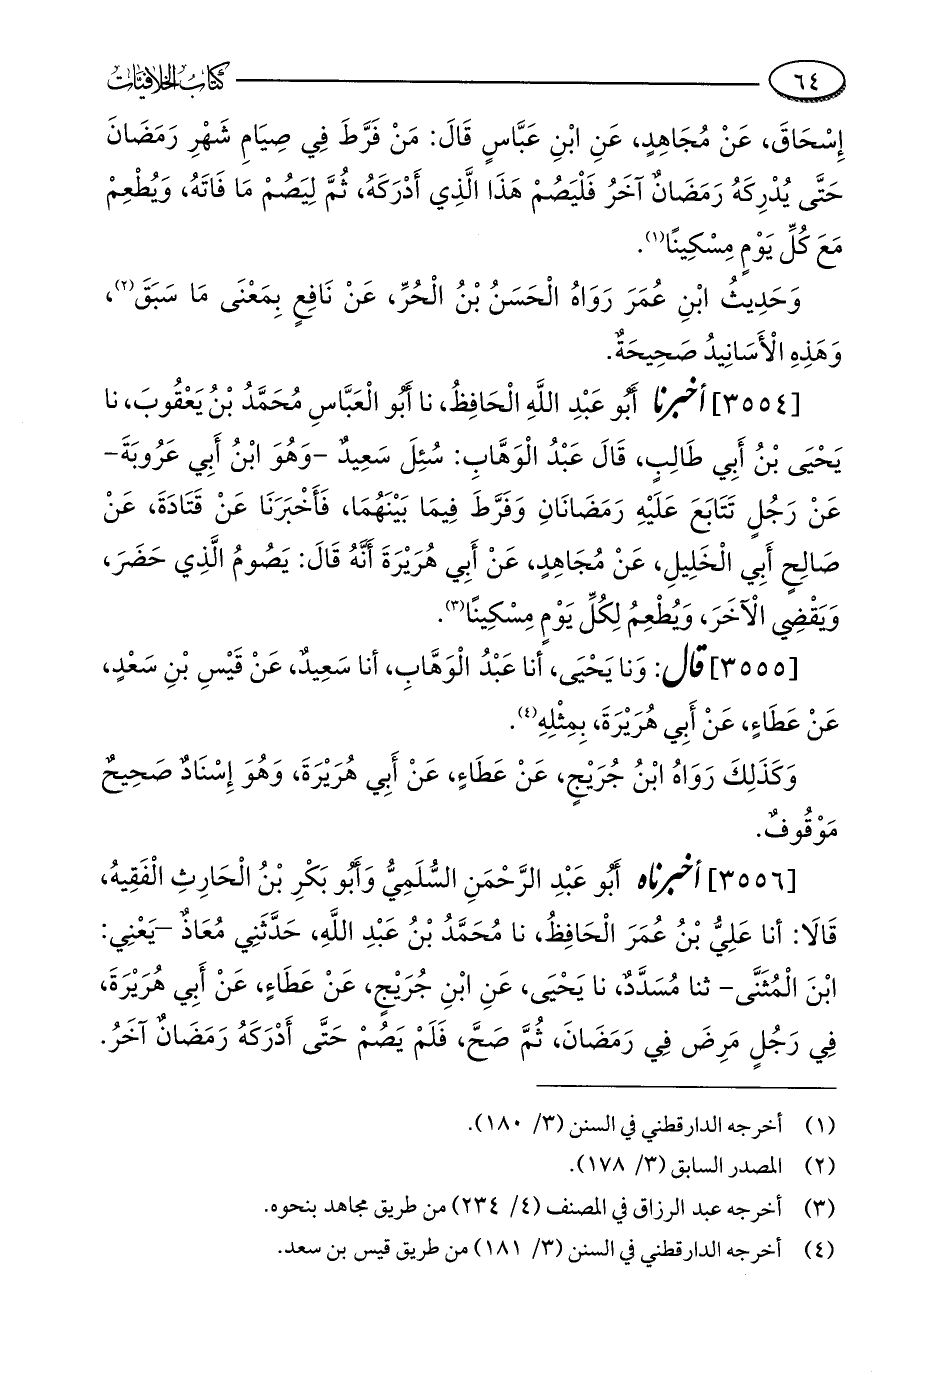 ٦٤ كتاب الخلافيات
إِسْحَاقَ، عَنْ مُجَاهِدٍ، عَنِ ابْنِ عَبَّاسٍ قَالَ: مَنْ فَرَّطَ فِي صِيَامِ شَهْرِ رَمَضَانَ
حَتَّى يُدْرِكَهُ رَمَضَانٌ آخَرُ فَلْيَصُمْ هَذَا الَّذِي أَدْرَكَهُ، ثُمَّ لِيَصُمْ مَا فَاتَهُ، وَيُطْعِمْ
مَعَ كُلِّ يَوْمٍ مِسْكِينًا(١).
وَحَدِيثُ ابْنِ عُمَرَ رَوَاهُ الْحَسَنُ بْنُ الْحُرِّ، عَنْ نَافِعٍ بِمَعْنَى مَا سَبَقَ(٢)،
وَهَذِهِ الْأَسَانِيدُ صَحِيحَةٌ.
[٣٥٥٤] أخبرنا أَبُو عَبْدِ اللَّهِ الْحَافِظُ، نا أَبُو الْعَبَّاسِ مُحَمَّدُ بْنُ يَعْقُوبَ، نا
يَحْيَى بْنُ أَبِي طَالِبٍ، قَالَ عَبْدُ الْوَهَّابِ: سُئِلَ سَعِيدٌ -وَهُوَ ابْنُ أَبِي عَرُوبَةَ-
عَنْ رَجُلٍ تَتَابَعَ عَلَيْهِ رَمَضَانَانِ وَفَرَّطَ فِيمَا بَيْنَهُمَا، فَأَخْبَرَنَا عَنْ قَتَادَةَ، عَنْ
صَالِحٍ أَبِي الْخَلِيلِ، عَنْ مُجَاهِدٍ، عَنْ أَبِي هُرَيْرَةَ أَنَّهُ قَالَ: يَصُومُ الَّذِي حَضَرَ،
وَيَقْضِي الْآخَرَ، وَيُطْعِمُ لِكُلِّ يَوْمٍ مِسْكِينًا(٣).
[٣٥٥٥] قال: وَنا يَحْيَى، أنا عَبْدُ الْوَهَّابِ، أنا سَعِيدٌ، عَنْ قَيْسِ بْنِ سَعْدٍ،
عَنْ عَطَاءٍ، عَنْ أَبِي هُرَيْرَةَ، بِمِثْلِهِ(٤).
وَكَذَلِكَ رَوَاهُ ابْنُ جُرَيْجٍ، عَنْ عَطَاءٍ، عَنْ أَبِي هُرَيْرَةَ، وَهُوَ إِسْنَادٌ صَحِيحٌ
مَوْقُوفٌ.
[٣٥٥٦] أخبرناه أَبُو عَبْدِ الرَّحْمَنِ السُّلَمِيُّ وَأَبُو بَكْرِ بْنُ الْحَارِثِ الْفَقِيهُ،
قَالَا: أنا عَلِيُّ بْنُ عُمَرَ الْحَافِظُ، نا مُحَمَّدُ بْنُ عَبْدِ اللَّهِ، حَدَّثَنِي مُعَاذٌ -يَعْنِي:
ابْنَ الْمُثَنَّى- ثنا مُسَدَّدٌ، نا يَحْيَى، عَنِ ابْنِ جُرَيْجٍ، عَنْ عَطَاءٍ، عَنْ أَبِي هُرَيْرَةَ،
فِي رَجُلٍ مَرِضَ فِي رَمَضَانَ، ثُمَّ صَحَّ، فَلَمْ يَصُمْ حَتَّى أَدْرَكَهُ رَمَضَانٌ آخَرُ.
(١) أخرجه الدارقطني في السنن (٣/ ١٨٠).
(٢) المصدر السابق (٣/ ١٧٨).
(٣) أخرجه عبد الرزاق في المصنف (٤/ ٢٣٤) من طريق مجاهد بنحوه.
(٤) أخرجه الدارقطني في السنن (٣/ ١٨١) من طريق قيس بن سعد.